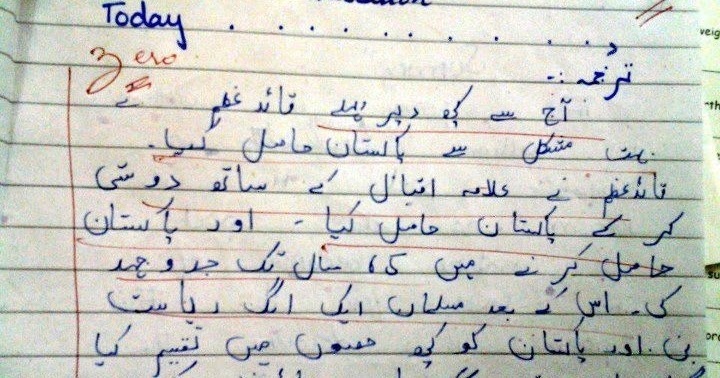 Today . . . . . . . . . . . .
Zero
ترجمہ :-
آج سے کچھ دیر پہلے قائد عظم نے
بہت مشکل سے پاکستان حاصل کیا۔
قائد عظم نے علامہ اقبال کے ساتھ دوستی
کر کے پاکستان حاصل کیا - اور پاکستان
حاصل کرنے میں سال تک جدوجہد
کی۔ اس کے بعد مسلمان ایک الگ ریاست
بنی۔ اور پاکستان کو کچھ حصوں میں تقسیم کیا